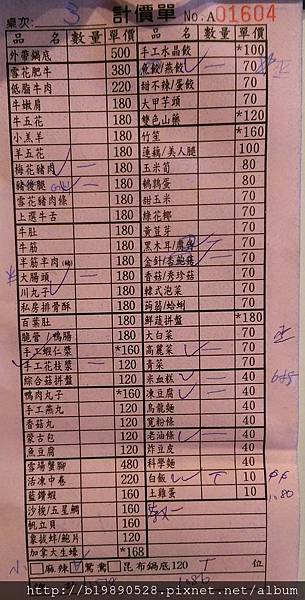 桌次: 3 計價單 No.A01604
品名 數量 單價
外帶鍋底 500
雪花肥牛 380
低脂牛肉 220
牛嫩肩 180
牛五花 180
小羔羊 180
羊五花 180
梅花豬肉 一 180
豬後腿 180
雪花豬肉條 180
上選牛舌 180
牛肚 180
牛筋 180
半筋半肉(燉) 180
大腸頭 一 180
川丸子 180
私房排骨酥 180
百葉肚 180
脆管/鴨腸 180
手工蝦仁漿 *160
手工花枝漿 一 120
綜合菇拼盤 120
鴨肉丸子 *160
手工燕丸 120
香菇丸 120
蒙古包 120
魚豆腐 120
雪場蟹腳 480
活凍中卷 220
藍鑽蝦 160
沙梭/五星鯛 160
帆立貝 160
象拔蚌/鮑片 120
加拿大生蠔 *168
品名 數量 單價
手工水晶餃 *100
魚餃/燕餃 一 70
甜不辣/蛋餃 70
大甲芋頭 70
雙色山藥 *120
竹笙 *160
蓮藕/美人腿 100
玉米筍 80
鵪鶉蛋 80
甜玉米 70
綠花椰 70
黃豆芽 70
黑木耳/腐皮 70
金針/香鮑菇 一 70
香菇/秀珍菇 70
韓式泡菜 70
蒟蒻/蛤蜊 70
鮮蔬拼盤 *180
大白菜 70
高麗菜 一 70
青菜 70
米血糕 一 40
凍豆腐 一 40
烏龍麵 40
寬粉條 40
老油條 一 40
炸豆皮 40
科學麵 40
白飯 T 10
土雞蛋 10
小 麻辣 鴛鴦 昆布鍋底120 T 位
1080